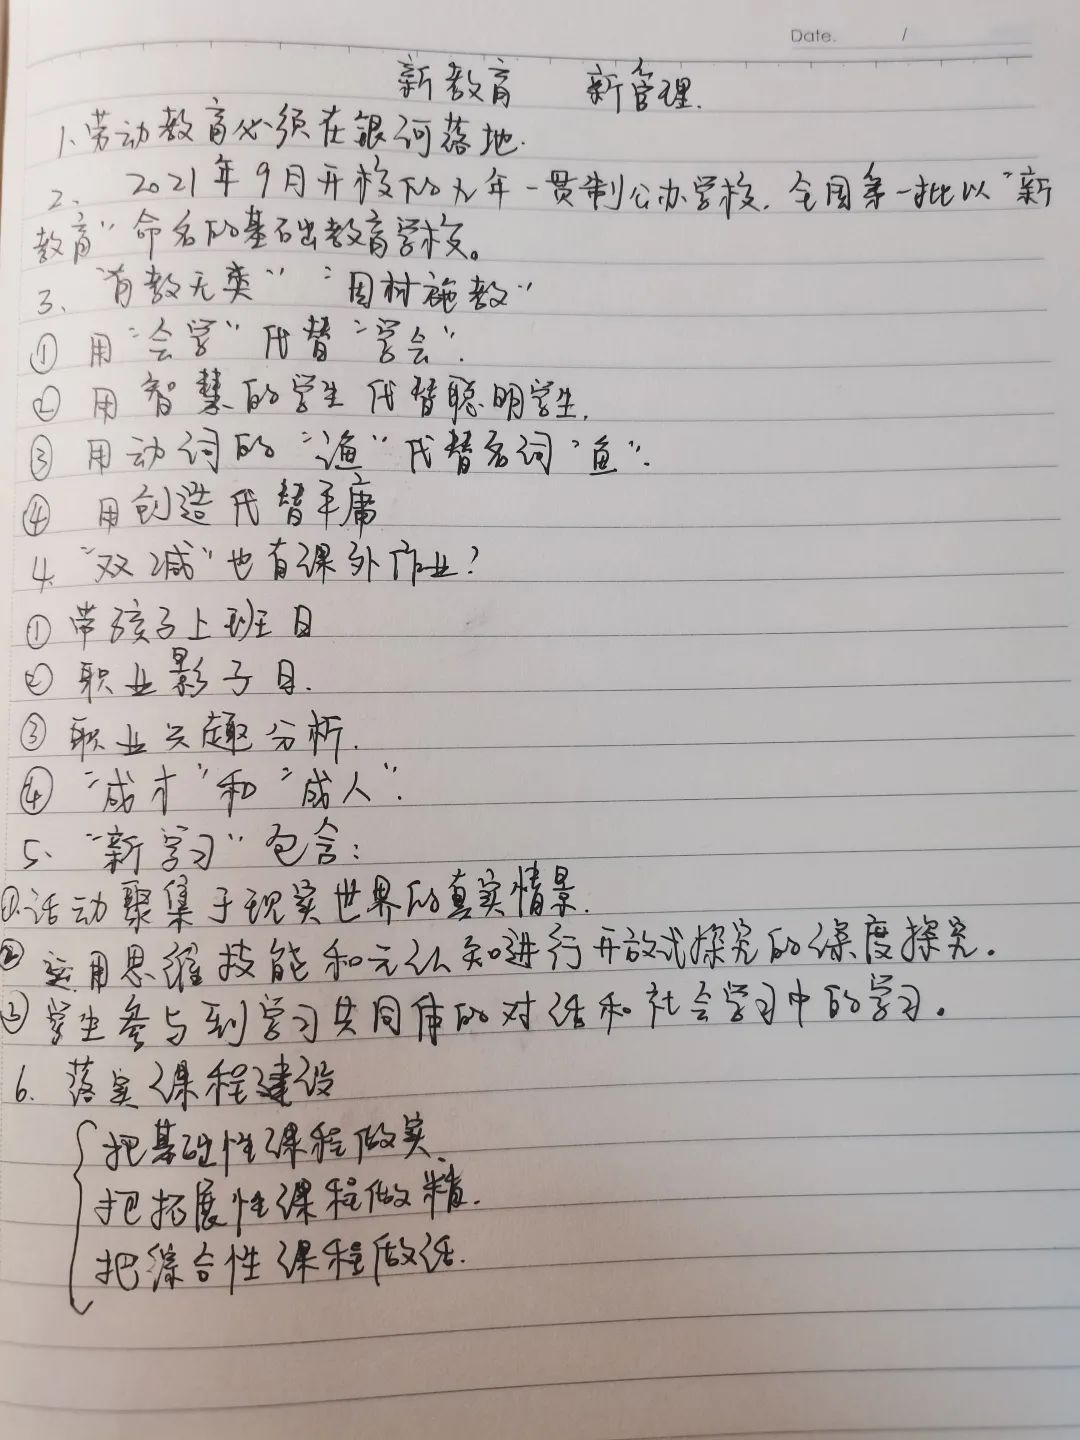 Date. /
新教育 新管理.
1、劳动教育必须在银河落地.
2、2021年9月开校的九年一贯制公办学校，全国第一批以“新
教育”命名的基础教育学校。
3、“有教无类”“因材施教”
① 用“会学”代替“学会”.
② 用智慧的学生代替聪明学生.
③ 用动词的“渔”代替名词“鱼”.
④ 用创造代替平庸
4、“双减”也有课外作业？
① 带孩子上班日
② 职业影子日.
③ 职业兴趣分析.
④ “成才”和“成人”.
5、“新学习”包含：
①活动聚集于现实世界的真实情景.
② 运用思维技能和元认知进行开放式探究的深度探究。
③ 学生参与到学习共同体的对话和社会学习中的学习。
6、落实课程建设
把基础性课程做实.
把拓展性课程做精.
把综合性课程做活.